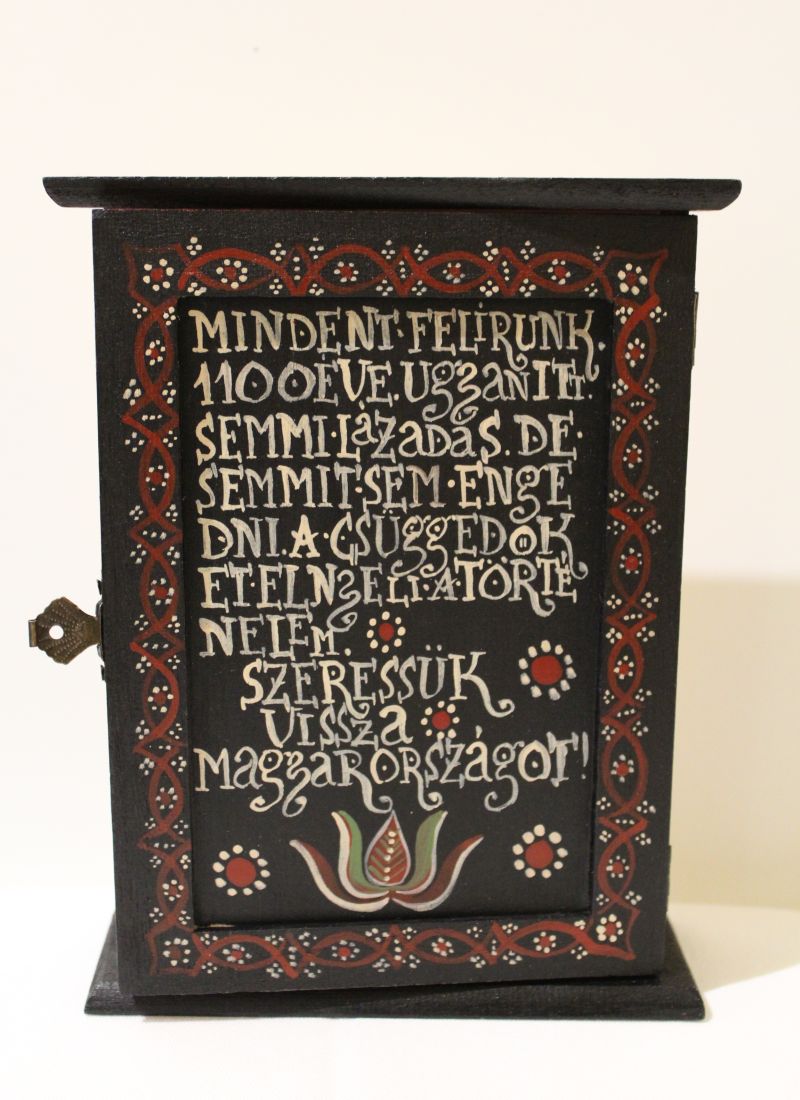 MINDENT·FELÍRUNK
1100ÉVE.UgyanITT.
SEMMI·LázadáS.DE·
SEMMIT·SEM·ENgE
DNI.A·CSÜggEDŐK
ET·ELNyELI·A·TÖRTÉ
NELEM.
SZERESSÜK
VISSZa
MagyaRORSZágOT!